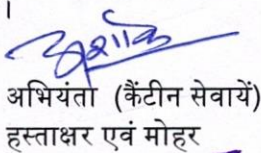 ।
अशोक
अभियंता (कैंटीन सेवायें)
हस्ताक्षर एवं मोहर